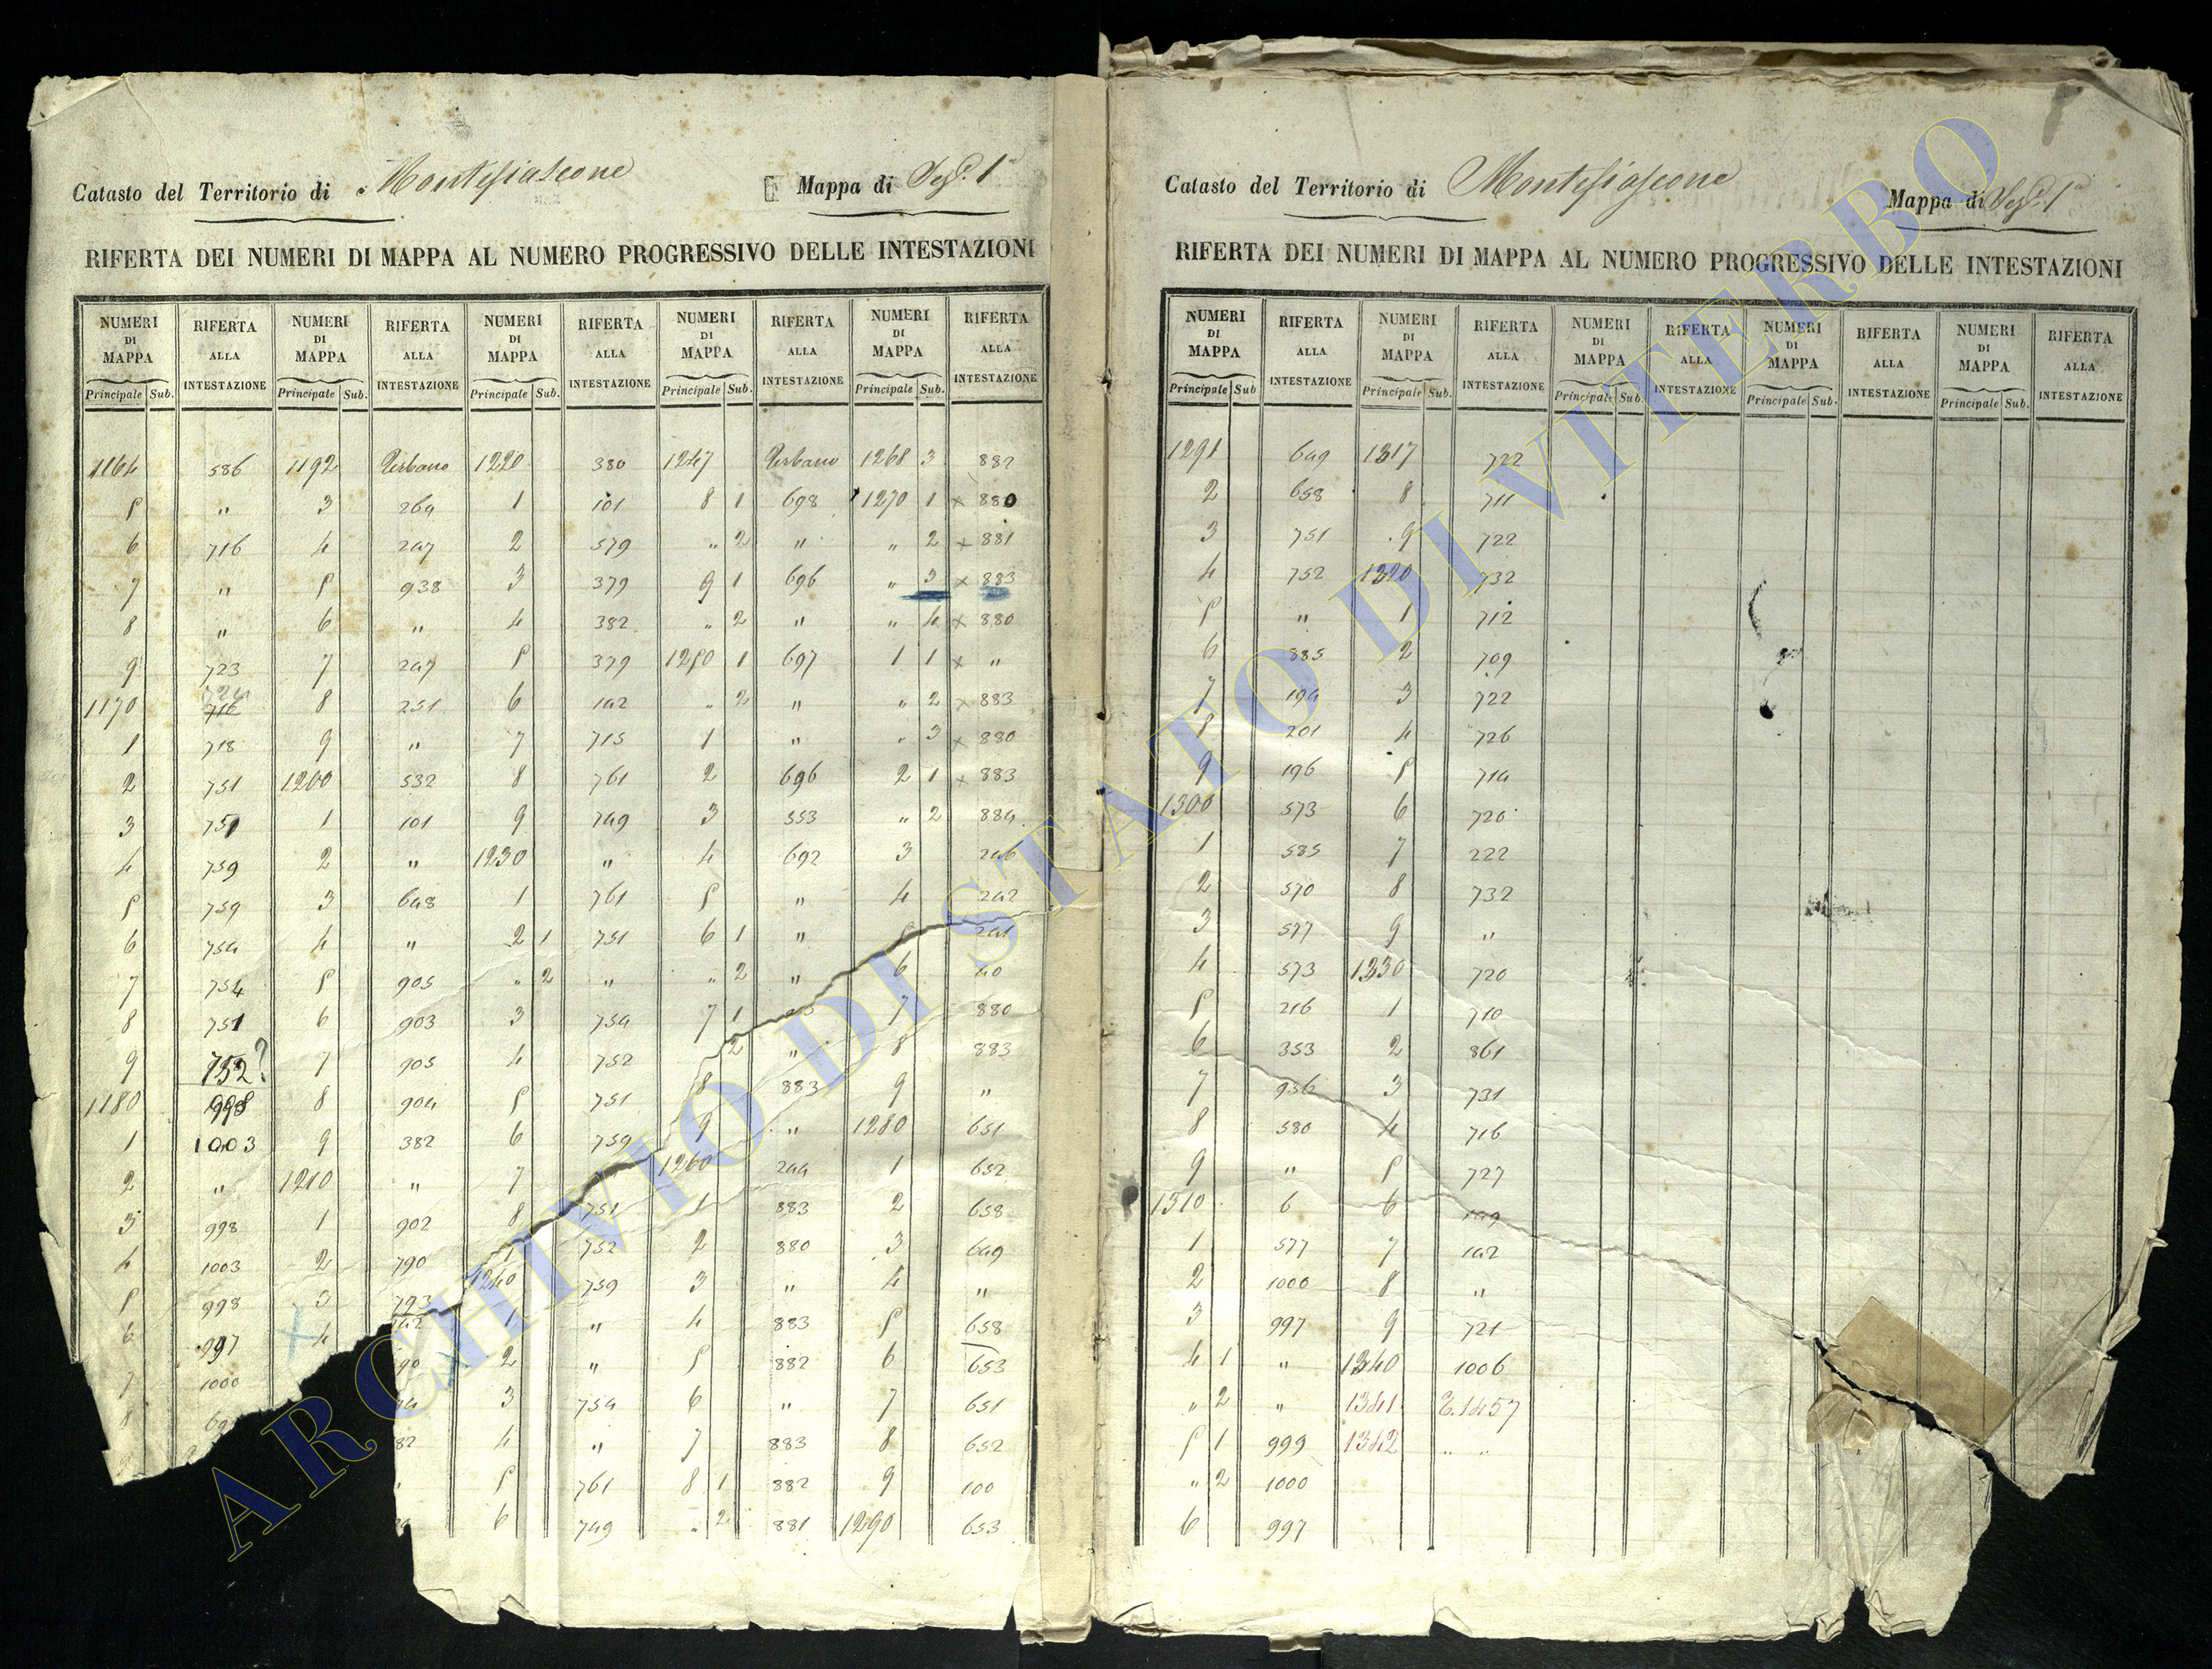 Catasto del Territorio di Montefiascone Mappa di Sez.e 1a
RIFERTA DEI NUMERI DI MAPPA AL NUMERO PROGRESSIVO DELLE INTESTAZIONI
NUMERI DI MAPPA RIFERTA ALLA INTESTAZIONE NUMERI DI MAPPA RIFERTA ALLA INTESTAZIONE NUMERI DI MAPPA RIFERTA ALLA INTESTAZIONE NUMERI DI MAPPA RIFERTA ALLA INTESTAZIONE NUMERI DI MAPPA RIFERTA ALLA INTESTAZIONE
Principale Sub. Principale Sub. Principale Sub. Principale Sub. Principale Sub.
1164 586 1192 Urbano 1220 380 1247 Urbano 1268 3 882
5 " 3 264 1 101 8 1 698 1270 1 x 880
6 716 4 247 2 579 " 2 " " 2 x 881
7 " 5 938 3 379 9 1 696 " 3 x 883
8 " 6 " 4 382 " 2 " " 4 x 880
9 723 7 247 5 379 1250 1 697 1 1 x "
1170 716 8 251 6 142 " 2 " " 2 x 883
1 718 9 " 7 715 1 " " 3 x 880
2 751 1200 532 8 761 2 696 2 1 x 883
3 751 1 101 9 749 3 553 " 2 884
4 759 2 " 1230 " 4 692 3 246
5 759 3 648 1 761 5 " 4 242
6 754 4 " 2 1 751 6 1 " 5 241
7 754 5 905 " 2 " " 2 " 6 40
8 751 6 903 3 754 7 1 7 880
9 752? 7 905 4 752 2 " 8 883
1180 998 8 904 5 751 8 883 9 "
1 1003 9 382 6 759 9 " 1280 651
2 " 1210 " 7 1260 244 1 652
3 998 1 902 8 751 1 883 2 658
4 1003 2 790 752 2 880 3 649
5 998 3 793 1240 759 3 " 4 "
6 997 x 4 142 1 " 4 883 5 658
7 1000 90 2 " 5 882 6 653
8 3 754 6 " 7 651
82 4 " 7 883 8 652
5 761 8 1 882 9 100
6 749 " 2 881 1290 653
Catasto del Territorio di Montefiascone Mappa di Sez.e 1a
RIFERTA DEI NUMERI DI MAPPA AL NUMERO PROGRESSIVO DELLE INTESTAZIONI
NUMERI DI MAPPA RIFERTA ALLA INTESTAZIONE NUMERI DI MAPPA RIFERTA ALLA INTESTAZIONE NUMERI DI MAPPA RIFERTA ALLA INTESTAZIONE NUMERI DI MAPPA RIFERTA ALLA INTESTAZIONE NUMERI DI MAPPA RIFERTA ALLA INTESTAZIONE
Principale Sub Principale Sub. Principale Sub. Principale Sub. Principale Sub.
1291 649 1317 722
2 658 8 711
3 751 9 722
4 752 1320 732
5 " 1 712
6 885 2 709
7 194 3 722
8 201 4 726
9 196 5 714
1300 573 6 726
1 585 7 222
2 570 8 732
3 577 9 "
4 573 1330 720
5 216 1 710
6 353 2 861
7 936 3 731
8 580 4 716
9 " 5 727
1310 6 6 149
1 577 7 142
2 1000 8 "
3 997 9 721
4 1 " 1340 1006
" 2 " 1341 E.1457
5 1 999 1342 " "
" 2 1000
6 997
ARCHIVIO DI STATO DI VITERBO